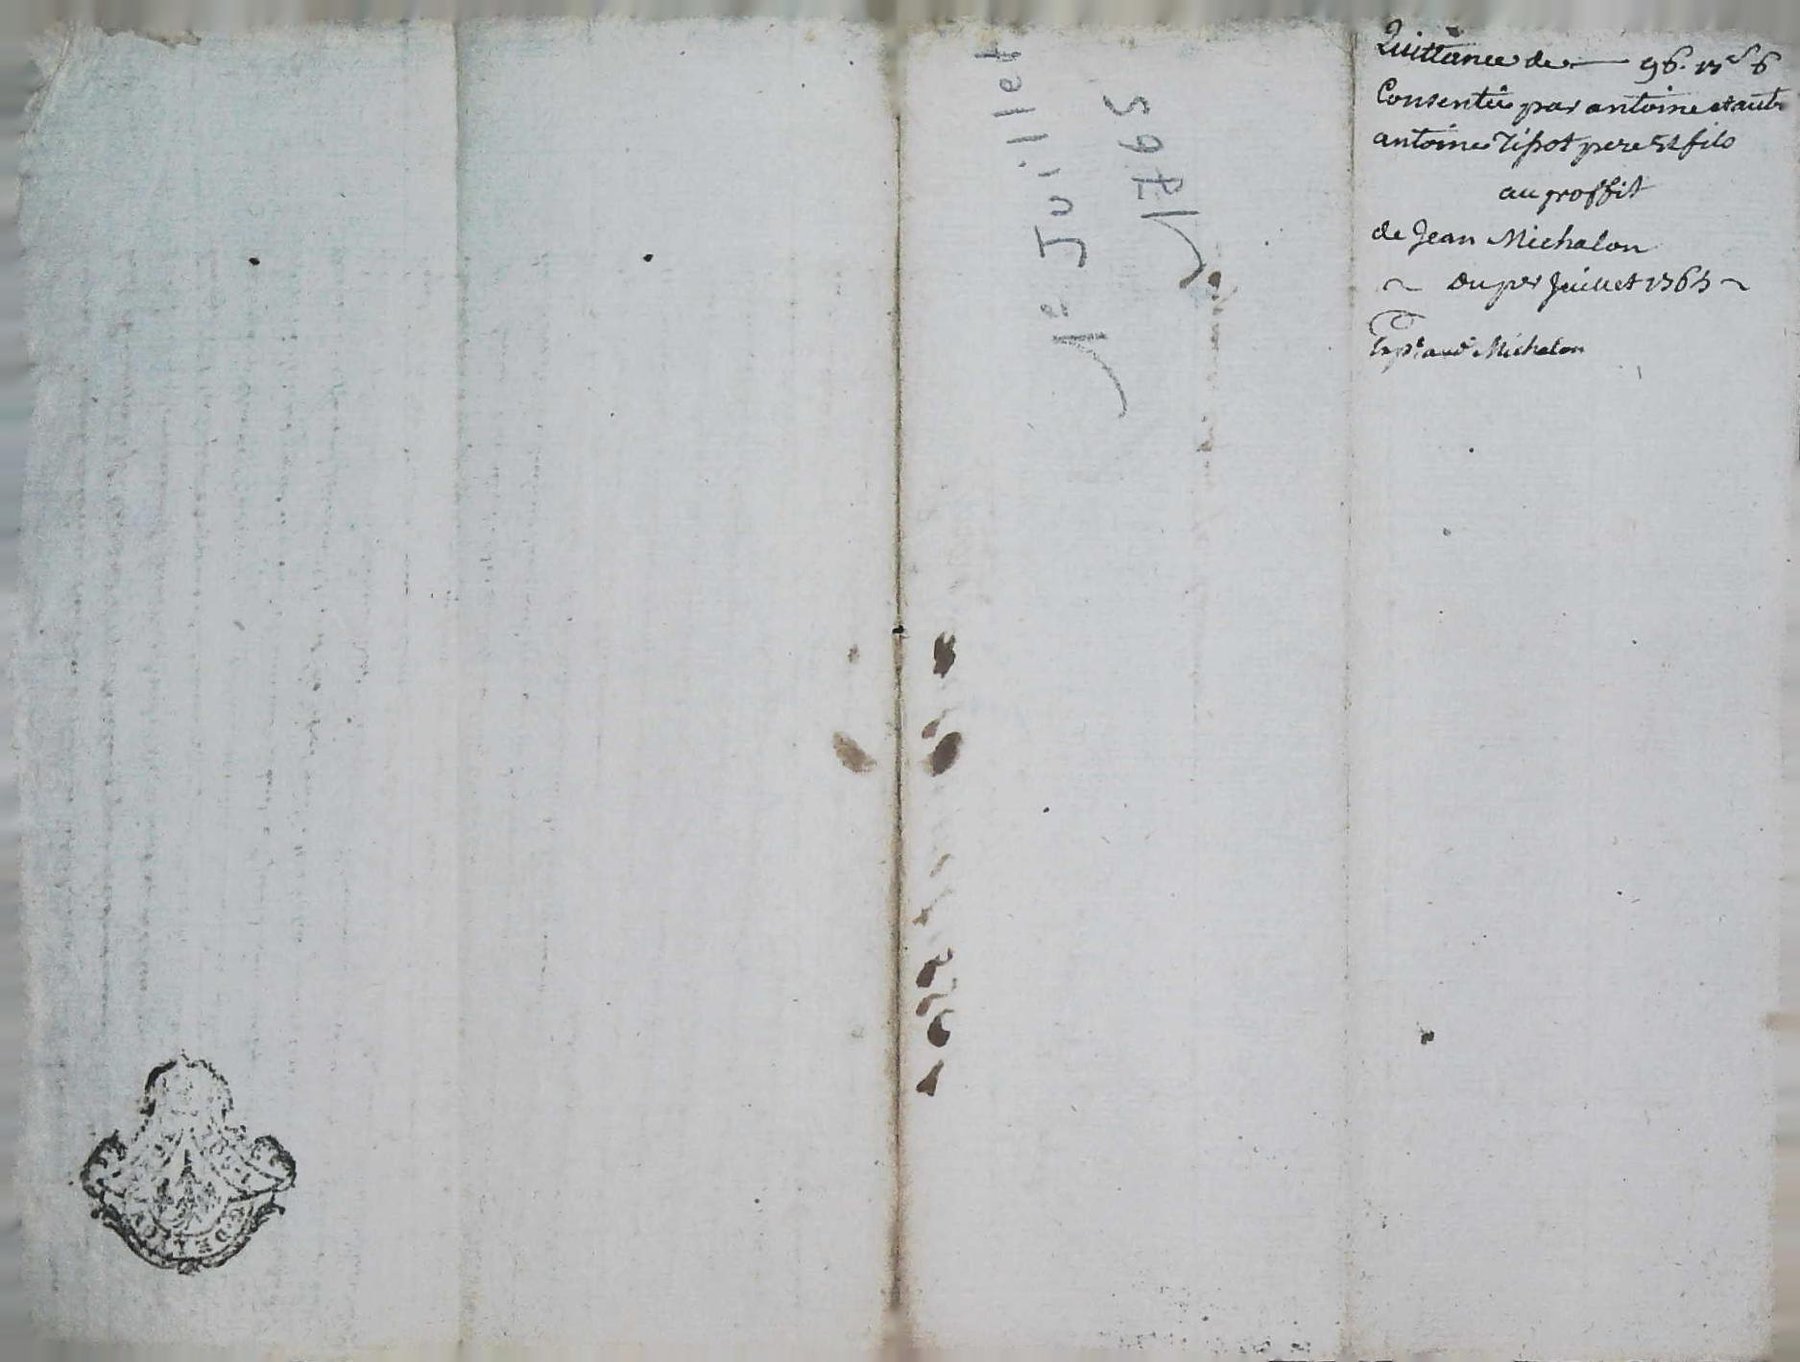 Quittance de — 96. 17 s 6
Consentüe par antoine et autr
antoine Tissot pere et fils
au proffit
de Jean Michalon
~ Du per Juillet 1765 ~
Exp. aud. Michalon
1e Juillet
1765